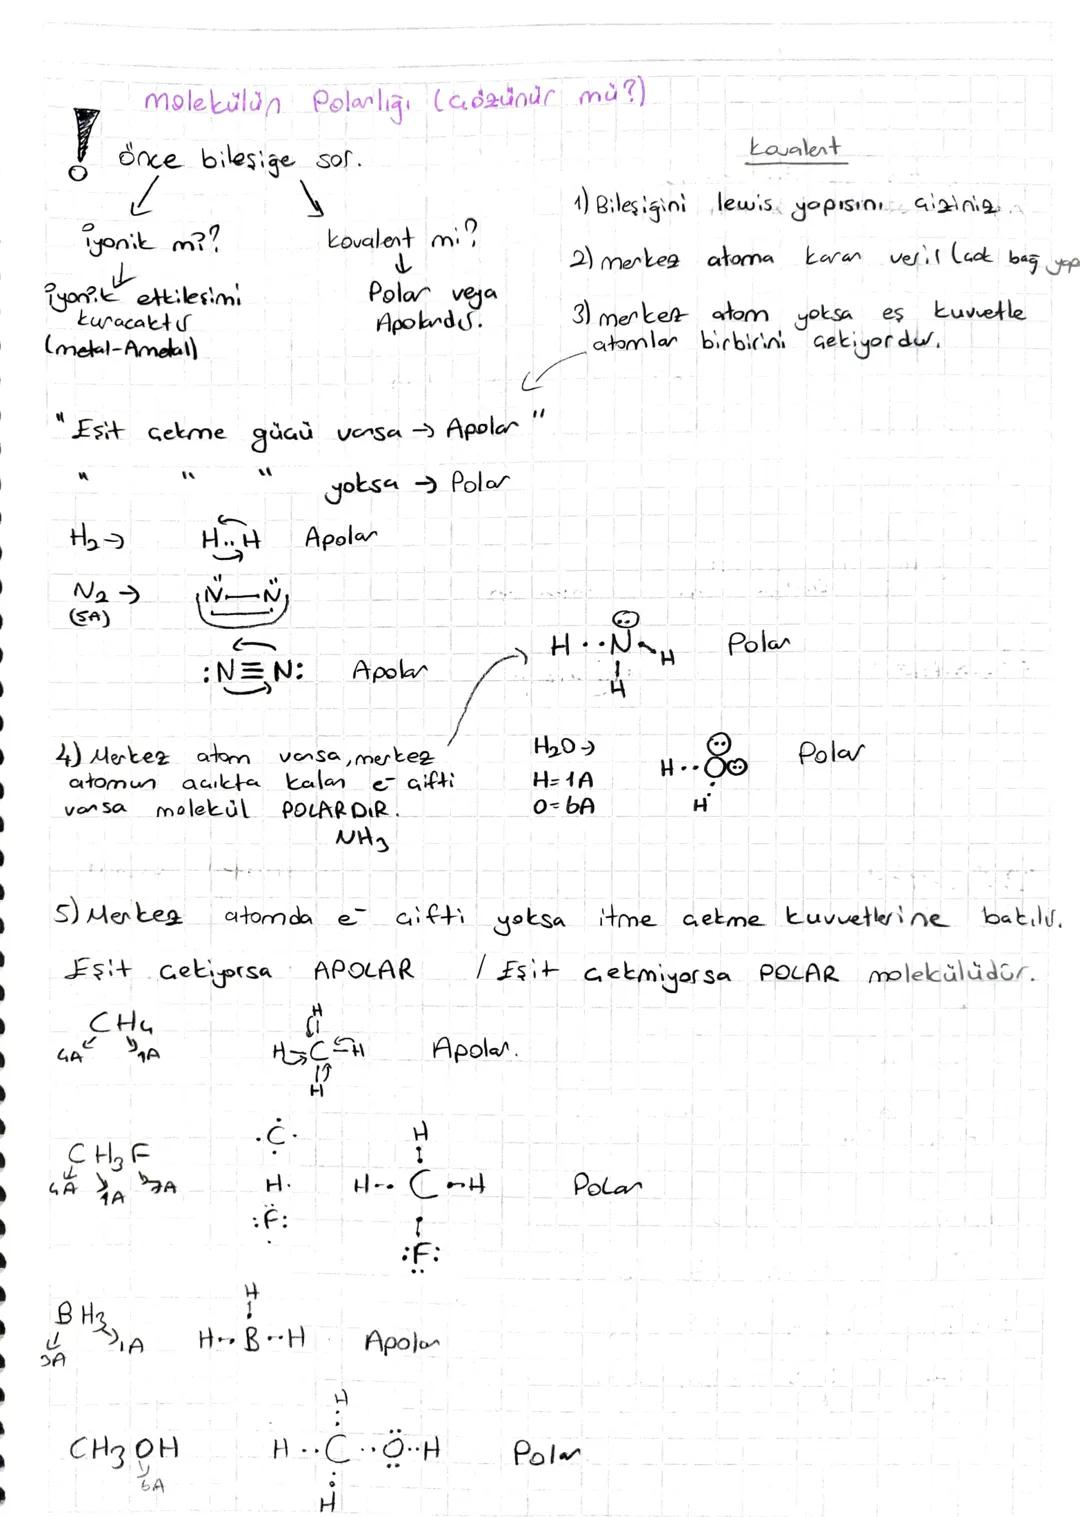 Molekülün Polarlığı (Çözünür mü?)
! önce bileşiğe sor.
iyonik mi?
kovalent mi?
iyonik etkileşimi
kuracaktır
(metal-Ametal)
Polar veya
Apolardır.
kovalent
1) Bileşiğini lewis yapısını çiziniz.
2) merkez atoma karar verilir (çok bağ yap
3) merkez atom yoksa eş kuvvetle
atomlar birbirini çekiyordur.
"Eşit çekme gücü varsa → Apolar"
" " " yoksa → Polar
H2 → H..H Apolar
N2 → N N
(5A)
:N≡N: Apolar
H..N H Polar
H
4) Merkez atom varsa, merkez
atomun açıkta kalan e- çifti
varsa molekül POLARDIR.
NH3
H2O →
H=1A
O=6A
H..O Polar
H
5) Merkez atomda e- çifti yoksa itme çekme kuvvetlerine bakılır.
Eşit çekiyorsa APOLAR / Eşit çekmiyorsa POLAR molekülüdür.
CH4
4A 1A
H
H C H Apolar.
H
CH3F
4A 1A 7A
.C.
H.
:F:
H
H.. C ..H Polar
:F:
BH3
3A 1A
H
H.. B ..H Apolar
CH3OH
6A
H
H..C..O..H Polar
H